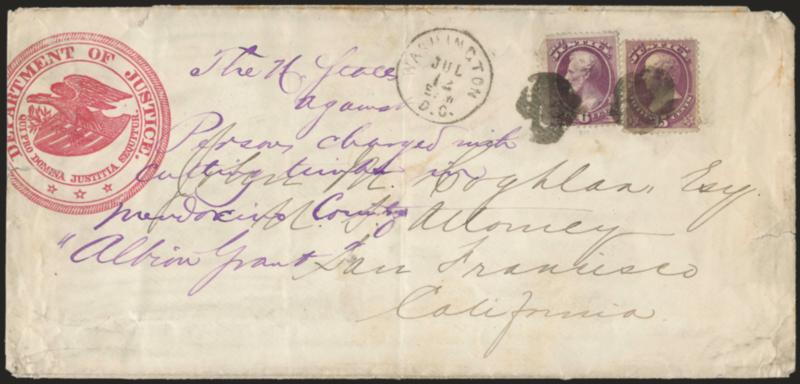 DEPARTMENT OF JUSTICE.
QUI PRO DOMINA JUSTITIA SEQUITUR.
WASHINGTON
JUL
12
D.C.
JUSTICE
JUSTICE
The U States
against
Persons charged with
cutting timber in
Mendocino County
"Albion Grant"
John M. Coghlan, Esq.
U. S. Attorney
San Francisco
California.